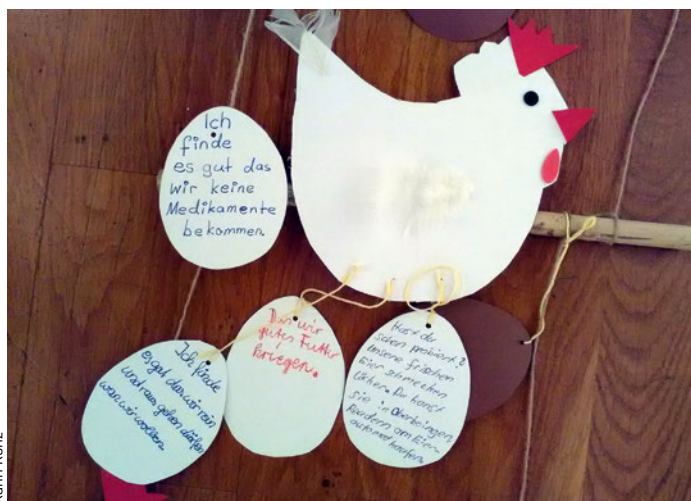 Ich
finde
es gut das
wir keine
Medikamente
bekommen.
Ich finde
es gut das wir rein
und raus gehen dürfen
wan wir wollen.
Das wir
gutes Futter
kriegen.
Hast du
schon probiert?
Unsere frischen
Eier schmecken
lecker. Du kanst
sie in Oberbeingen
am Eier-